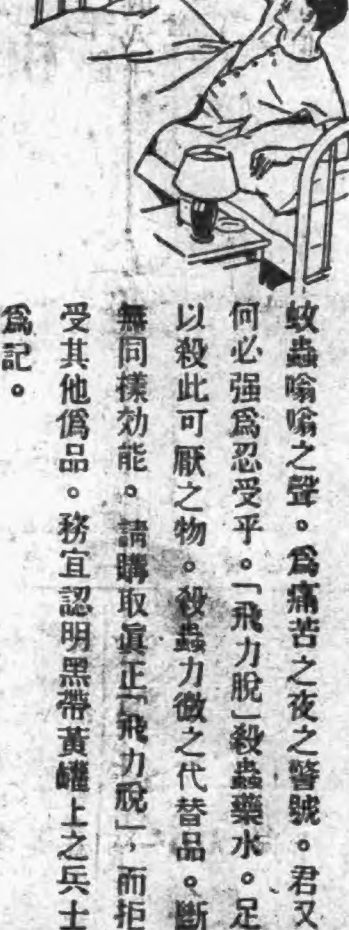 蚊蟲嗡嗡之聲。爲痛苦之夜之警號。君又
何必强爲忍受乎。「飛力脫」殺蟲藥水。足
以殺此可厭之物。殺蟲力微之代替品。斷
無同樣効能。請購取眞正「飛力脫」，而拒
受其他僞品。務宜認明黑帶黃罐上之兵士
爲記。